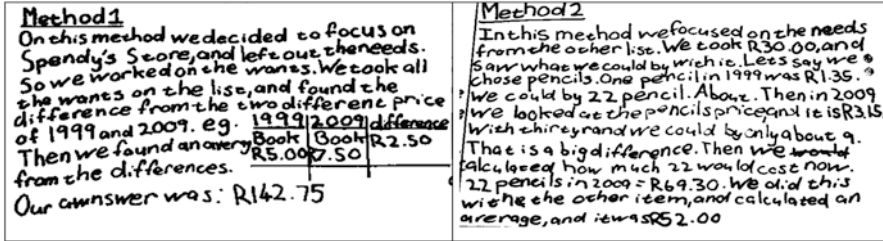 Method 1
On this method we decided to focus on
Spendy's Store, and left out the needs.
So we worked on the wants. We took all
the wants on the list, and found the
difference from the two different price
of 1999 and 2009. eg. 1999 2009 difference
Then we found an avery Book Book R2.50
from the differences. R5.00 R7.50
Our awnswer was: R142.75
Method 2
In this method we focused on the needs
from the other list. We took R30.00, and
saw what we could by with it. Lets say we
chose pencils. One pencil in 1999 was R1.35.
We could by 22 pencil. About. Then in 2009
we looked at the pencils price and it is R3.15
With thirty rand we could by only about 9.
That is a big difference. Then we would
calculated how much 22 would cost now.
22 pencils in 2009 = R69.30. We did this
withe the other item, and calculated an
arerage, and it was R52.00